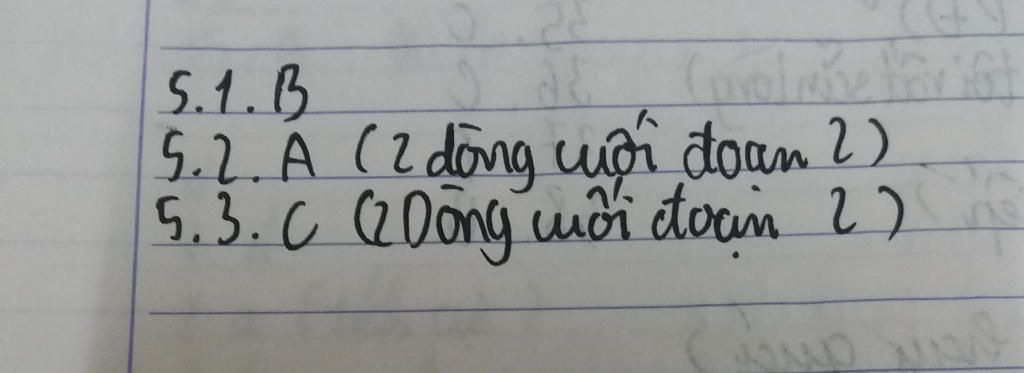 5.1. B
5.2. A (2 dòng cuối đoạn 2)
5.3. C (2 Dòng cuối đoạn 2)